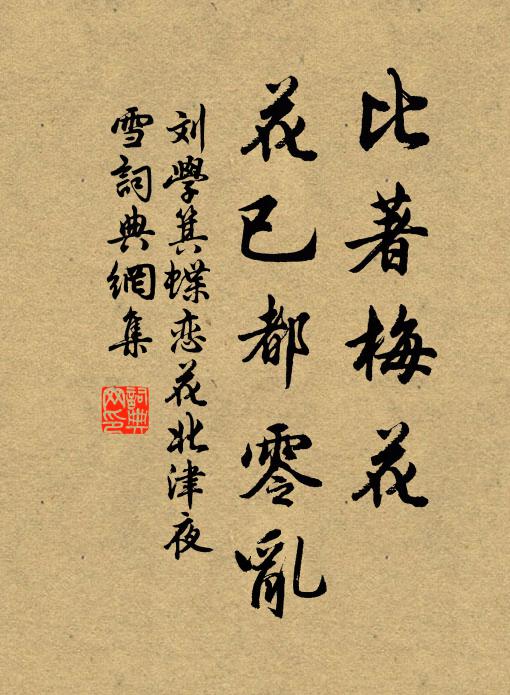 比著梅花
花已都零亂
刘學箕蝶恋花北津夜
雪詞典網集
詞典
网印